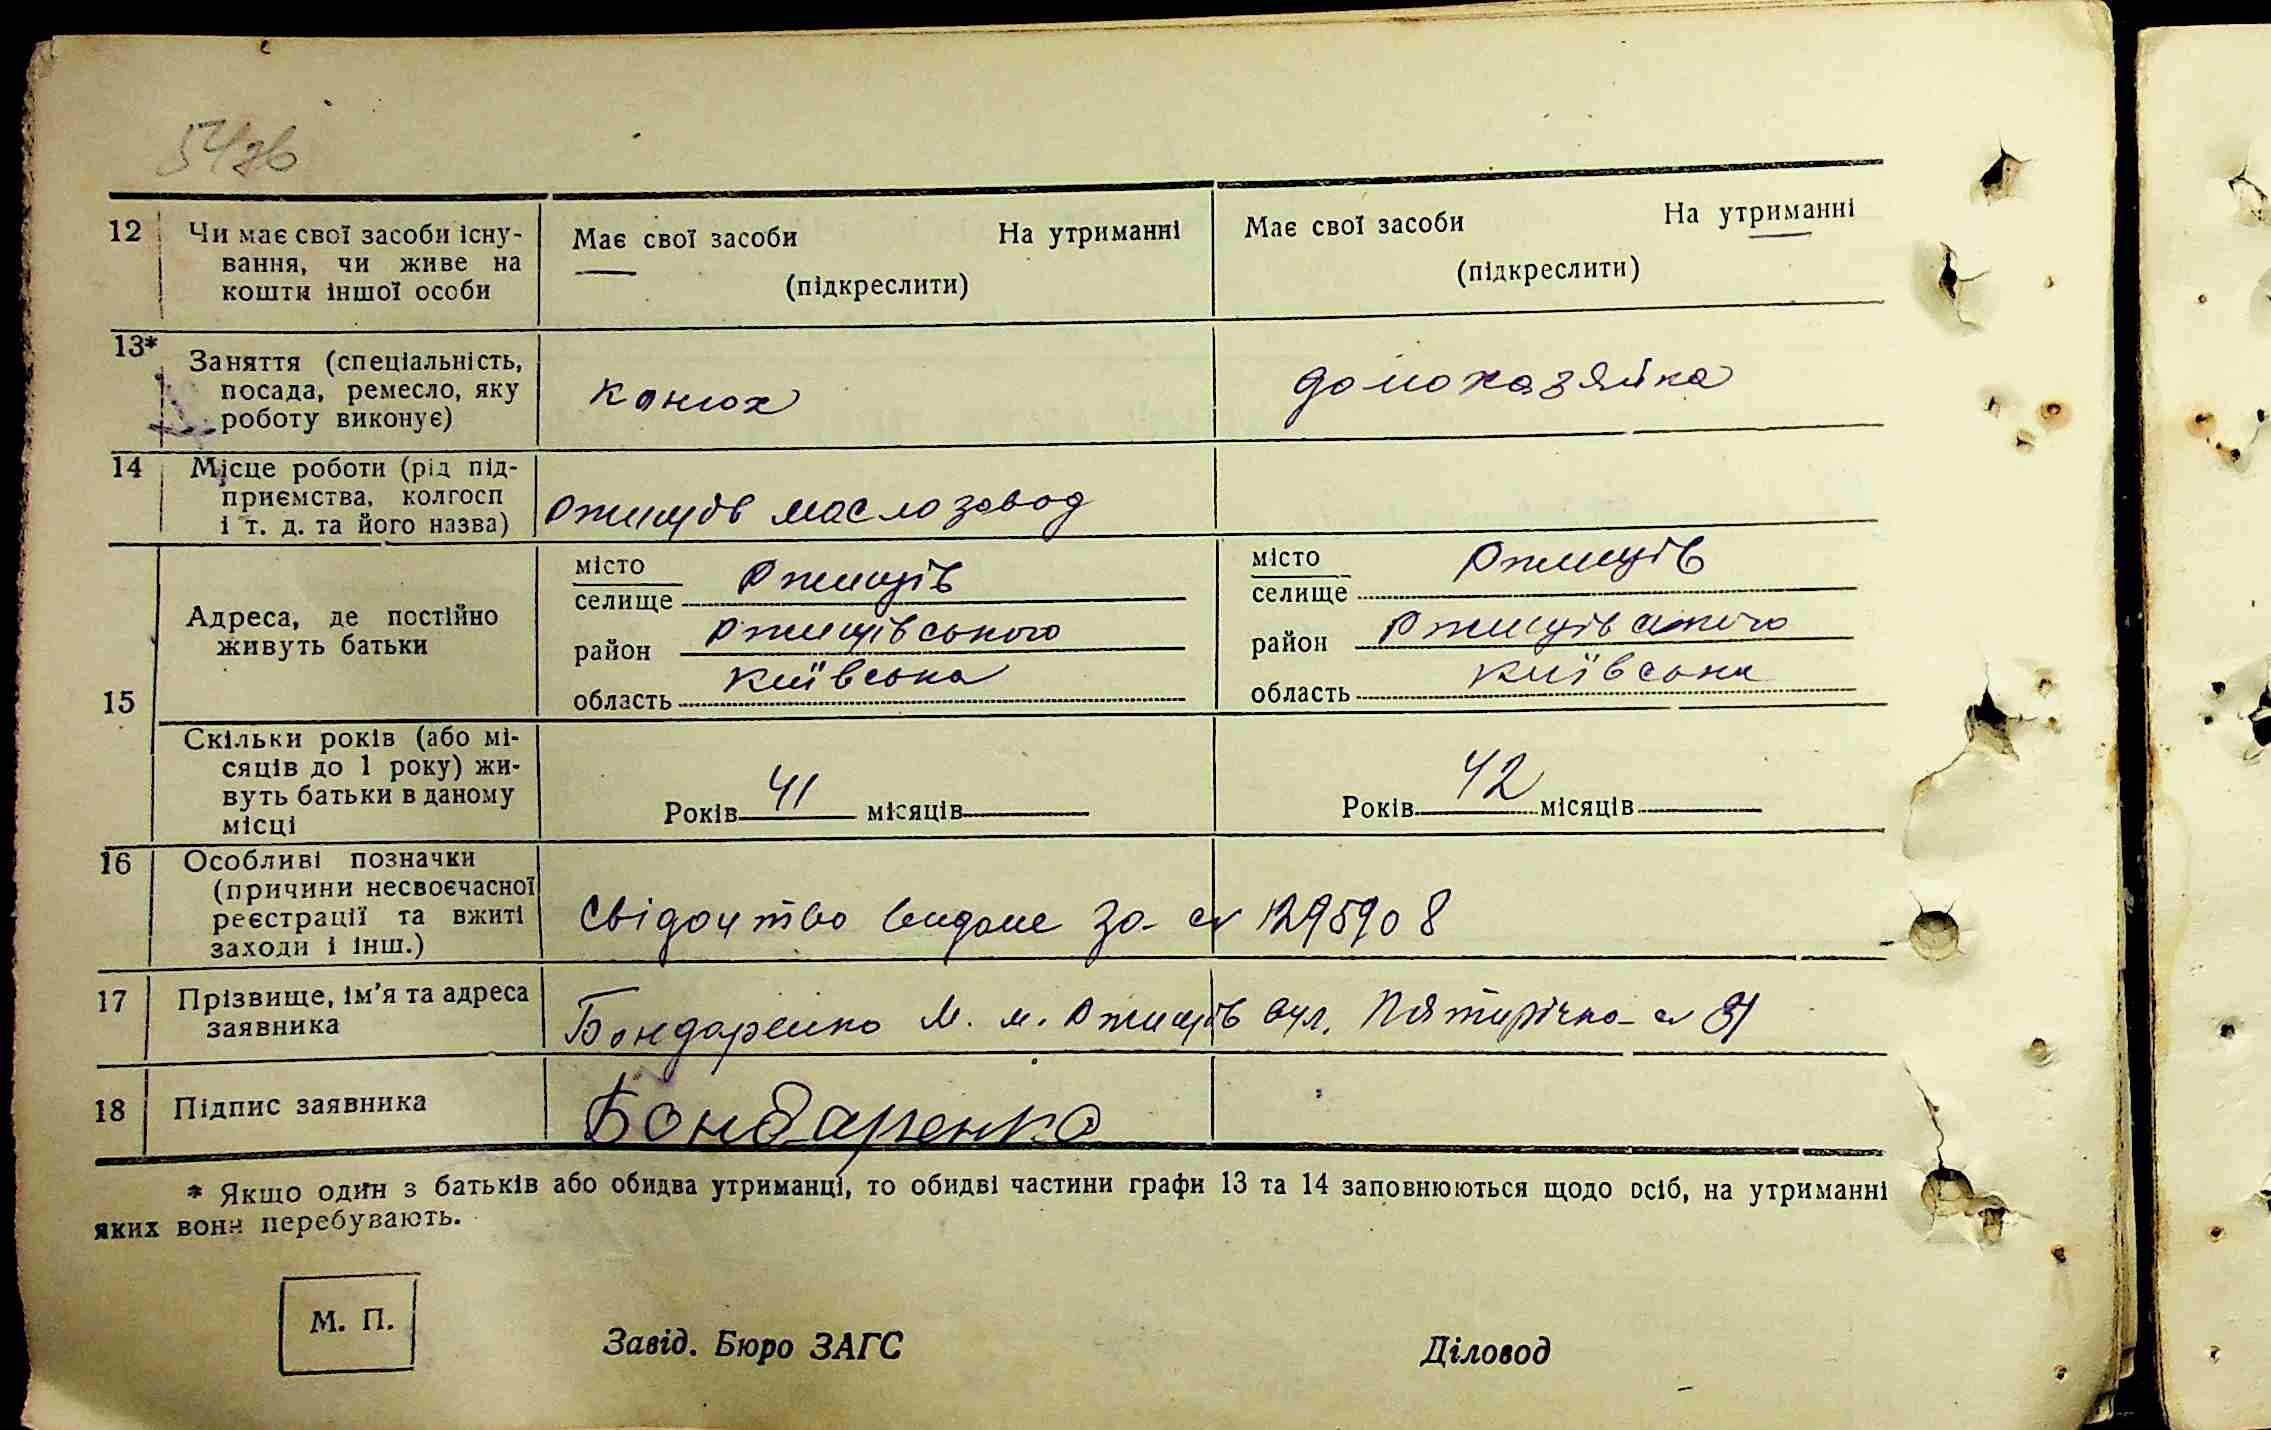 54зв
12 Чи має свої засоби існу- Має свої засоби На утриманні Має свої засоби На утриманні
вання, чи живе на (підкреслити) (підкреслити)
кошти іншої особи
13* Заняття (спеціальність,
посада, ремесло, яку конюх домохазяйка
роботу виконує)
14 Місце роботи (рід під-
приємства, колгосп Ржищів маслозавод
і т. д. та його назва)
місто Ржищів місто Ржищів
селище селище
Адреса, де постійно район Ржищівського район Ржищівського
живуть батьки область Київська область Київська
15
Скільки років (або мі-
сяців до 1 року) жи-
вуть батьки в даному Років 41 місяців Років 42 місяців
місці
16 Особливі позначки
(причини несвоєчасної
реєстрації та вжиті Свідоцтво видане за № 1295908
заходи і інш.)
17 Прізвище, ім'я та адреса Бондаренко М. м. Ржищів вул. Пятирічка №
заявника
18 Підпис заявника Бондаренко
* Якщо один з батьків або обидва утриманці, то обидві частини графи 13 та 14 заповнюються щодо осіб, на утриманні
яких вони перебувають.
М. П.
Завід. Бюро ЗАГС Діловод